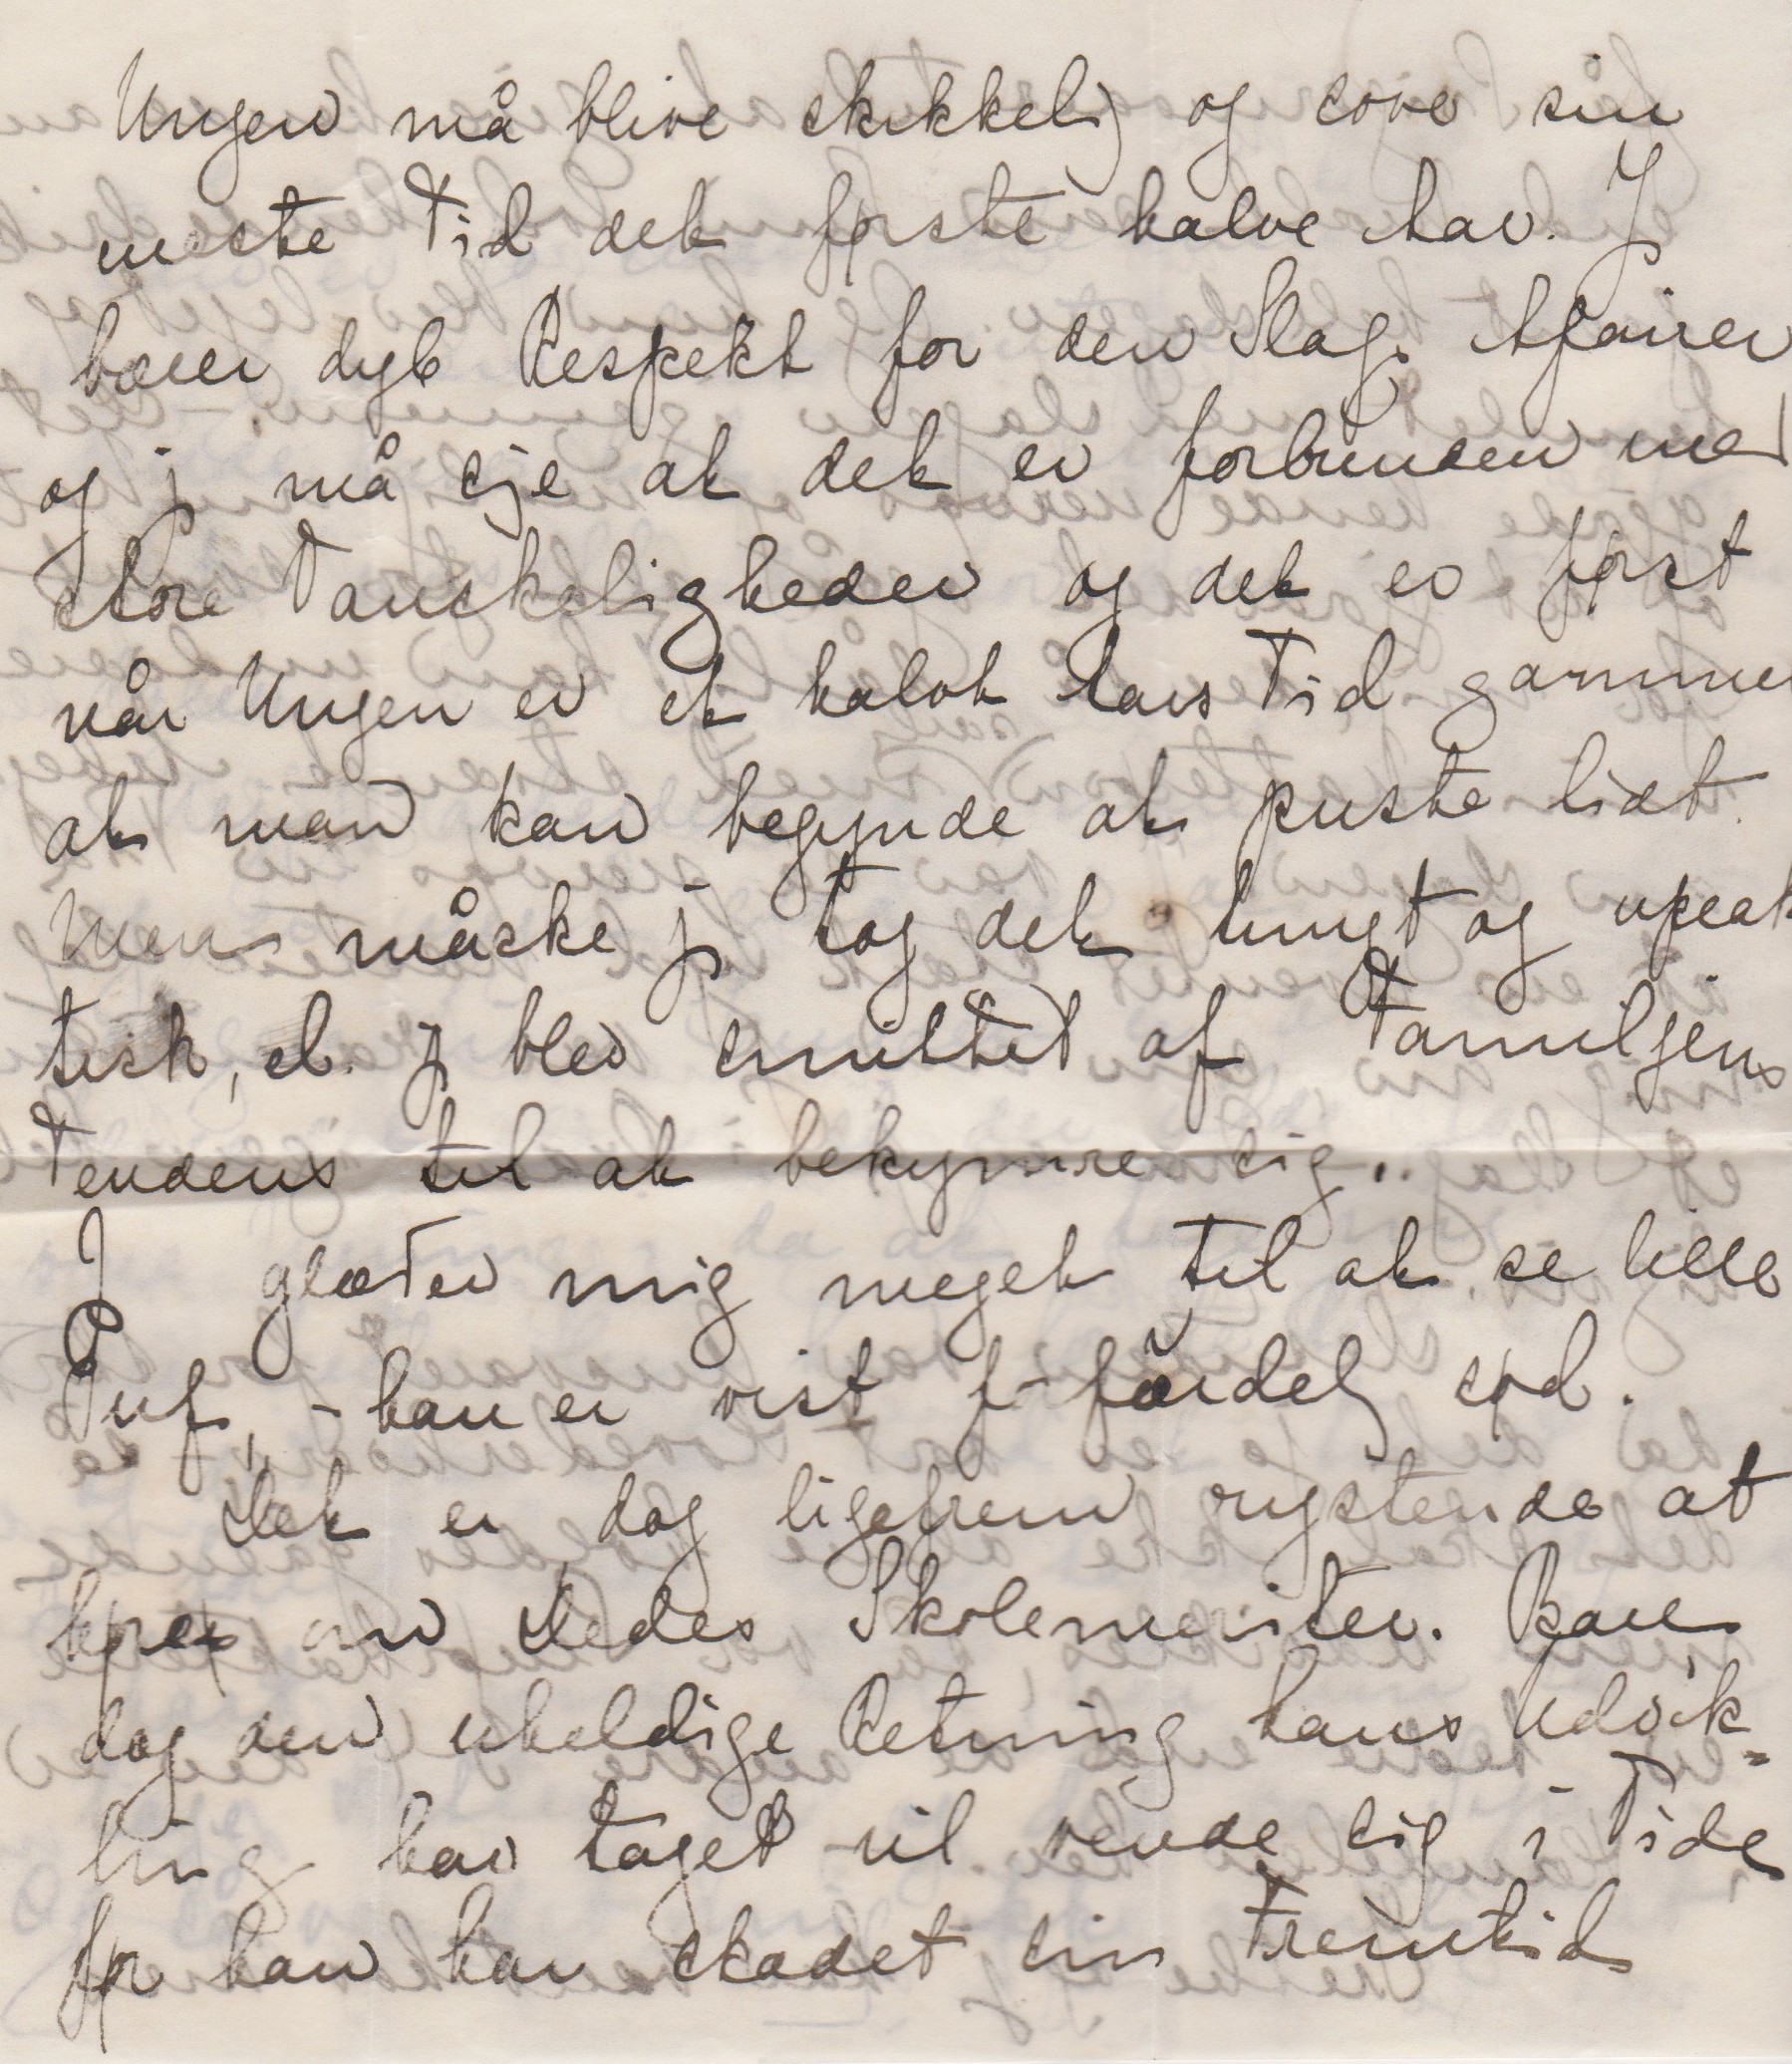 Ungen må blive skikkelj og sove sin
meste Tid det første halve Aar. J
bærer dyb Respekt for den Slags Afairer
og j må sije at det er forbunden med
store Vanskeligheder og det er først
når Ungen er et halvt Aars Tid gammel
at man kan begynde at puste lidt.
Men måske j tog det tungt og upeak
tisk, el. j blev smittet af Familjens
Tendens til at bekymre sig.
J glæder mig meget til at se lille
Puf, - han er vist f-færdelj sød.
Det er dog ligefrem rystende at
høre om Dedes Skolemeriter. Bare
dog den uheldige Retning hans Udvik=
ling har taget vil vende sig i Tide
før han har skadet sin Fremtid